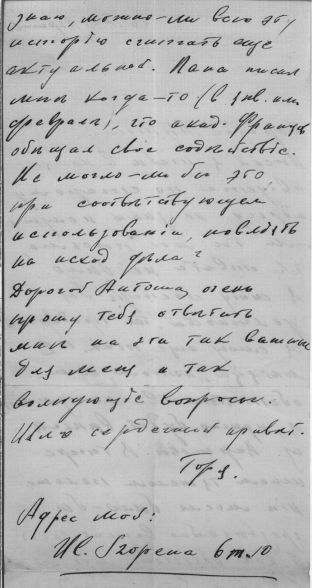 знаю, можно-ли всю эту
исторію считать еще
актуальной. Папа писал
мнѣ когда-то (в янв. или
февралѣ), что акад. Францев
обѣщал свое содѣйствіе.
Не могло-ли бы это,
при соотвѣтствующем
использованіи, повліять
на исход дѣла?
Дорогой Антоша, очень
прошу тебя отвѣтить
мнѣ на эти так важные
для меня и так
волнующіе вопросы.
Шлю сердечный привѣт.
Горя.
Адрес мой:
Ul. 6 m. 10